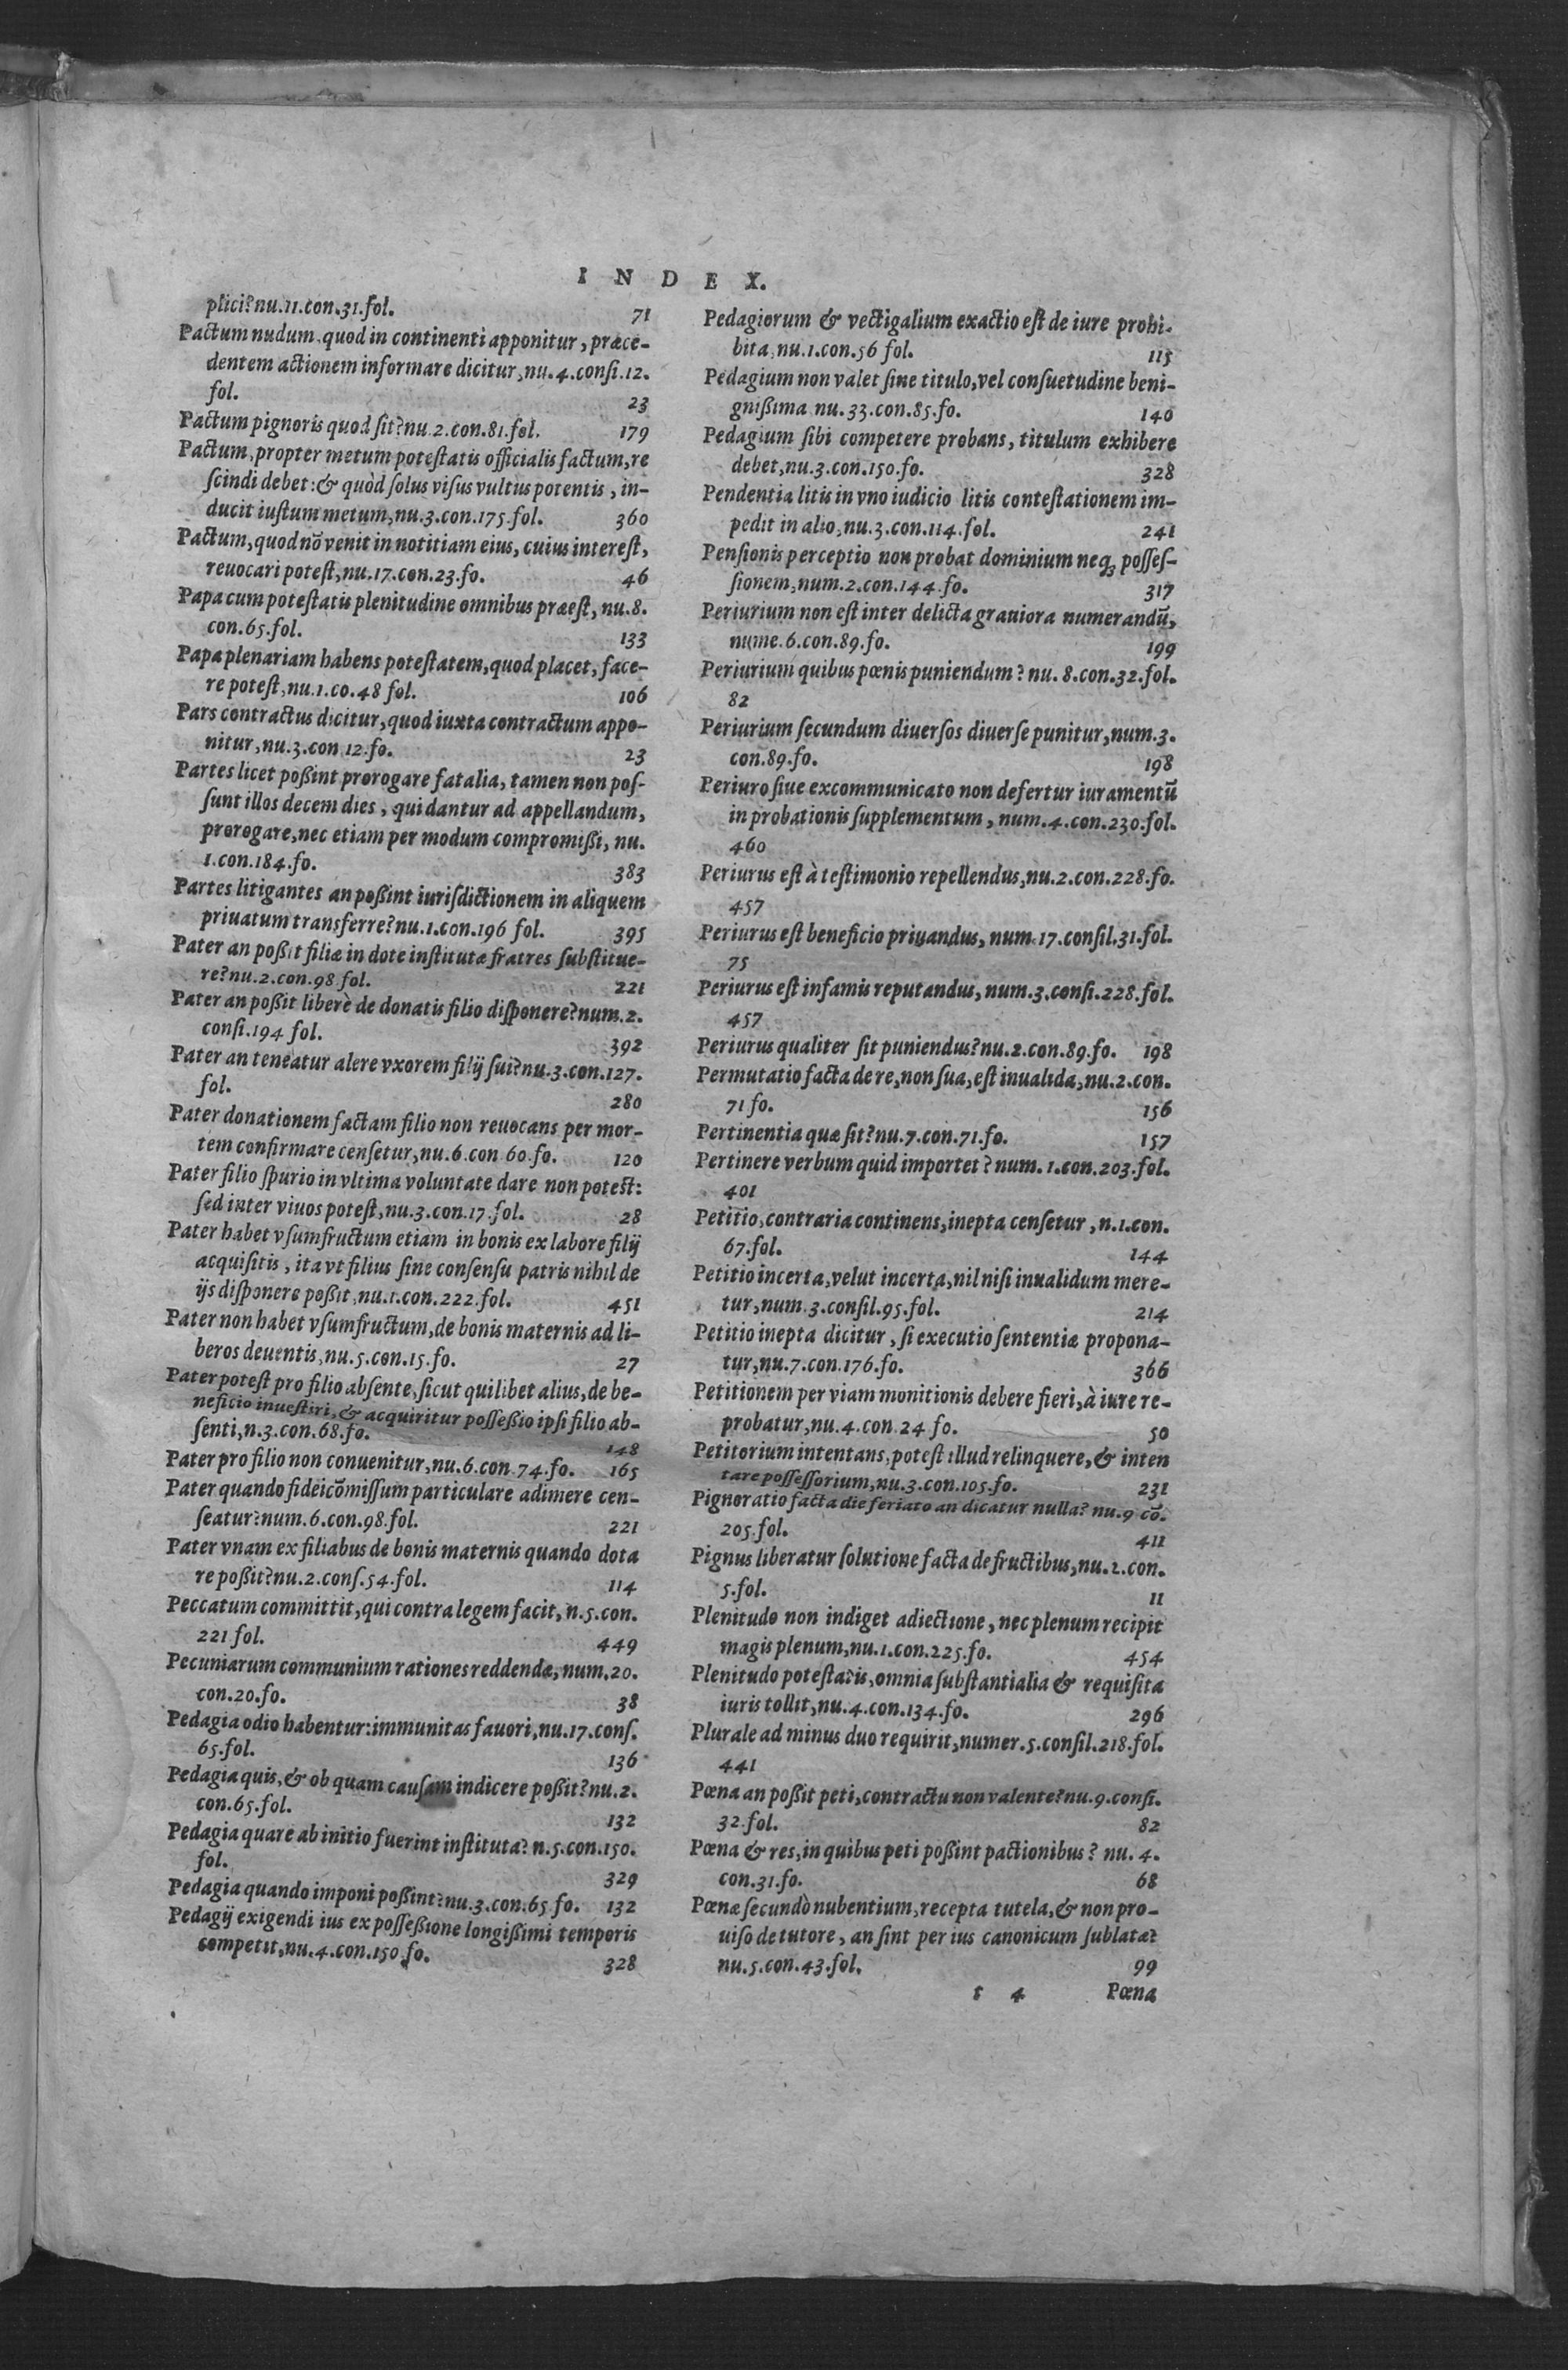 INDEX.
plici? nu. 11. con. 31. fol. 71
Pactum nudum, quod in continenti apponitur, præce-
dentem actionem informare dicitur, nu. 4. consi. 12.
fol. 23
Pactum pignoris quod sit? nu. 2. con. 81. fol. 179
Pactum, propter metum potestatis officialis factum, re
scindi debet: & quòd solus visus vultus potentis, in-
ducit iustum metum, nu. 3. con. 175. fol. 360
Pactum, quod nō venit in notitiam eius, cuius interest,
reuocari potest, nu. 17. con. 23. fo. 46
Papa cum potestatis plenitudine omnibus præest, nu. 8.
con. 65. fol. 133
Papa plenariam habens potestatem, quod placet, face-
re potest, nu. 1. co. 48 fol. 106
Pars contractus dicitur, quod iuxta contractum appo-
nitur, nu. 3. con 12. fo. 23
Partes licet poßint prorogare fatalia, tamen non pos-
sunt illos decem dies, qui dantur ad appellandum,
prorogare, nec etiam per modum compromißi, nu.
1. con. 184. fo. 383
Partes litigantes an poßint iurisdictionem in aliquem
priuatum transferre? nu. 1. con. 196 fol. 395
Pater an poßit filiæ in dote institutæ fratres substitue-
re? nu. 2. con. 98 fol. 221
Pater an poßit liberè de donatis filio disponere? num. 2.
consi. 194 fol. 392
Pater an teneatur alere vxorem filij sui? nu. 3. con. 127.
fol. 280
Pater donationem factam filio non reuocans per mor-
tem confirmare censetur, nu. 6. con 60. fo. 120
Pater filio spurio in vltima voluntate dare non potest:
sed inter viuos potest, nu. 3. con. 17. fol. 28
Pater habet vsumfructum etiam in bonis ex labore filij
acquisitis, ita vt filius sine consensu patris nihil de
ijs disponere poßit, nu. 1. con. 222. fol. 451
Pater non habet vsumfructum, de bonis maternis ad li-
beros deuentis, nu. 5. con. 15. fo. 27
Pater potest pro filio absente, sicut quilibet alius, de be-
neficio inuestiri, & acquiritur posseßio ipsi filio ab-
senti, n. 3. con. 68. fo. 148
Pater pro filio non conuenitur, nu. 6. con. 74. fo. 165
Pater quando fideicōmissum particulare adimere cen-
seatur? num. 6. con. 98. fol. 221
Pater vnam ex filiabus de bonis maternis quando dota
re poßit? nu. 2. cons. 54. fol. 114
Peccatum committit, qui contra legem facit, n. 5. con.
221 fol. 449
Pecuniarum communium rationes reddendæ, num. 20.
con. 20. fo. 38
Pedagia odio habentur: immunitas fauori, nu. 17. cons.
65. fol. 136
Pedagia quis, & ob quam causam indicere poßit? nu. 2.
con. 65. fol. 132
Pedagia quare ab initio fuerint instituta? n. 5. con. 150.
fol. 329
Pedagia quando imponi poßint? nu. 3. con. 65. fo. 132
Pedagij exigendi ius ex posseßione longißimi temporis
competit, nu. 4. con. 150. fo. 328
Pedagiorum & vectigalium exactio est de iure prohi-
bita, nu. 1. con. 56 fol. 115
Pedagium non valet sine titulo, vel consuetudine beni-
gnißima nu. 33. con. 85. fo. 140
Pedagium sibi competere probans, titulum exhibere
debet, nu. 3. con. 150. fo. 328
Pendentia litis in vno iudicio litis contestationem im-
pedit in alio, nu. 3. con. 114. fol. 241
Pensionis perceptio non probat dominium neqꝫ posses-
sionem, num. 2. con. 144. fo. 317
Periurium non est inter delicta grauiora numerandū,
nume. 6. con. 89. fo. 199
Periurium quibus pœnis puniendum? nu. 8. con. 32. fol.
82
Periurium secundum diuersos diuerse punitur, num. 3.
con. 89. fo. 198
Periuro siue excommunicato non defertur iuramentū
in probationis supplementum, num. 4. con. 230. fol.
460
Periurus est à testimonio repellendus, nu. 2. con. 228. fo.
457
Periurus est beneficio priuandus, num. 17. consil. 31. fol.
75
Periurus est infamis reputandus, num. 3. consi. 228. fol.
457
Periurus qualiter sit puniendus? nu. 2. con. 89. fo. 198
Permutatio facta de re, non sua, est inualida, nu. 2. con.
71 fo. 156
Pertinentia quæ sit? nu. 7. con. 71. fo. 157
Pertinere verbum quid importet? num. 1. con. 203. fol.
401
Petitio, contraria continens, inepta censetur, n. 1. con.
67. fol. 144
Petitio incerta, velut incerta, nil nisi inualidum mere-
tur, num. 3. consil. 95. fol. 214
Petitio inepta dicitur, si executio sententiæ propona-
tur, nu. 7. con. 176. fo. 366
Petitionem per viam monitionis debere fieri, à iure re-
probatur, nu. 4. con. 24 fo. 50
Petitorium intentans, potest illud relinquere, & inten
tare possessorium, nu. 3. con. 105. fo. 231
Pignoratio facta die feriato an dicatur nulla? nu. 9 cō.
205. fol. 411
Pignus liberatur solutione facta de fructibus, nu. 2. con.
5. fol. 11
Plenitudo non indiget adiectione, nec plenum recipit
magis plenum, nu. 1. con. 225. fo. 454
Plenitudo potestatis, omnia substantialia & requisita
iuris tollit, nu. 4. con. 134. fo. 296
Plurale ad minus duo requirit, numer. 5. consil. 218. fol.
441
Pœna an poßit peti, contractu non valente? nu. 9. consi.
32. fol. 82
Pœna & res, in quibus peti poßint pactionibus? nu. 4.
con. 31. fo. 68
Pœnæ secundò nubentium, recepta tutela, & non pro-
uiso de tutore, an sint per ius canonicum sublatæ?
nu. 5. con. 43. fol. 99
t 4 Pœna